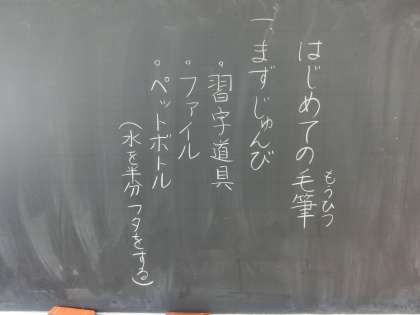 はじめての毛筆
もうひつ
一、まずじゅんび
。習字道具
。ファイル
。ペットボトル
(水を半分フタをする)